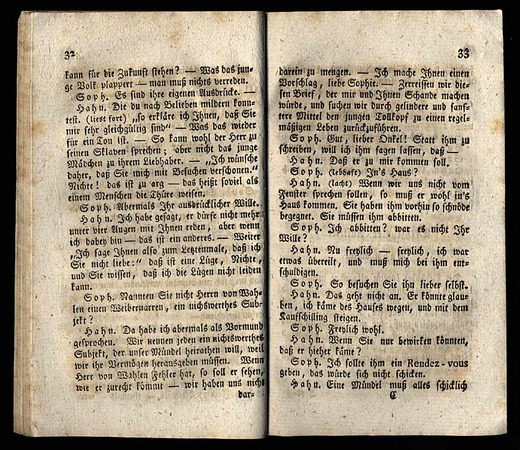 32
kann für die Zukunft stehen? — Was das jun-
ge Volk plappert — man muß nichts verreden.
Soph. Es sind ihre eigenen Ausdrücke. —
Hahn. Die du nach Belieben mildern konn-
test. (liest fort) „so erkläre ich Ihnen, daß Sie
mir sehr gleichgültig sind“ — Was das wieder
für ein Ton ist. — So kann wohl der Herr zu
seinen Sklaven sprechen; aber nicht das junge
Mädchen zu ihrem Liebhaber. — „Ich wünsche
daher, daß Sie mich mit Besuchen verschonen.“
Nichte! das ist zu arg — das heißt soviel als
einem Menschen die Thüre weisen.
Soph. Abermals Ihr ausdrücklicher Wille.
Hahn. Ich habe gesagt, er dürfe nicht mehr
unter vier Augen mit Ihnen reden, aber wenn
ich dabey bin — das ist ein anderes. — Weiter
„Ich sage Ihnen also zum Letztenmale, daß ich
Sie nicht liebe:“ daß ist eine Lüge, Nichte,
und Sie wissen, daß ich die Lügen nicht leiden
kann.
Soph. Nannten Sie nicht Herrn von Wah-
len einen Weibernarren, ein nichswerthes Sub-
jekt?
Hahn. Da habe ich abermals als Vormund
gesprochen. Wir nennen jeden ein nichtswerthes
Subjekt, der unser Mündel heirathen will, weil
wir ihr Vermögen herausgeben müssen. Wenn
Herr von Wahlen Fehler hat, so soll er sehen,
wie er zurecht kömmt — wir haben uns nicht
dar-
33
darein zu mengen. — Ich mache Ihnen einen
Vorschlag, liebe Sophie. — Zerreissen wir die-
sen Brief, der mir und Ihnen Schande machen
würde, und suchen wir durch gelindere und sanf-
tere Mittel den jungen Tollkopf zu einen regel-
mäßigen Leben zurückzuführen.
Soph. Gut, lieber Onkel! Statt ihm zu
schreiben, will ich ihm sagen lassen, daß —
Hahn. Daß er zu mir kommen soll.
Soph. (lebhaft) In's Haus?
Hahn. (lacht) Wenn wir uns nicht vom
Fenster sprechen sollen, so muß er wohl in's
Haus kommen. Sie haben ihm vorhin so schnöde
begegnet. Sie müssen ihm abbitten.
Soph. Ich abbitten? war es nicht Ihr
Wille?
Hahn. Nu freylich — freylich, ich war
etwas übereilt, und muß mich bei ihm ent-
schuldigen.
Soph. So besuchen Sie ihn lieber selbst.
Hahn. Das geht nicht an. Er könnte glau-
ben, ich käme des Hauses wegen, und mit dem
Kaufschilling steigen.
Soph. Freylich wohl.
Hahn. Wenn Sie nur bewirken könnten,
daß er hieher käme?
Soph. Ich sollte ihm ein Rendez-vous
geben, das würde sich nicht schicken.
Hahn. Eine Mündel muß alles schicklich
C